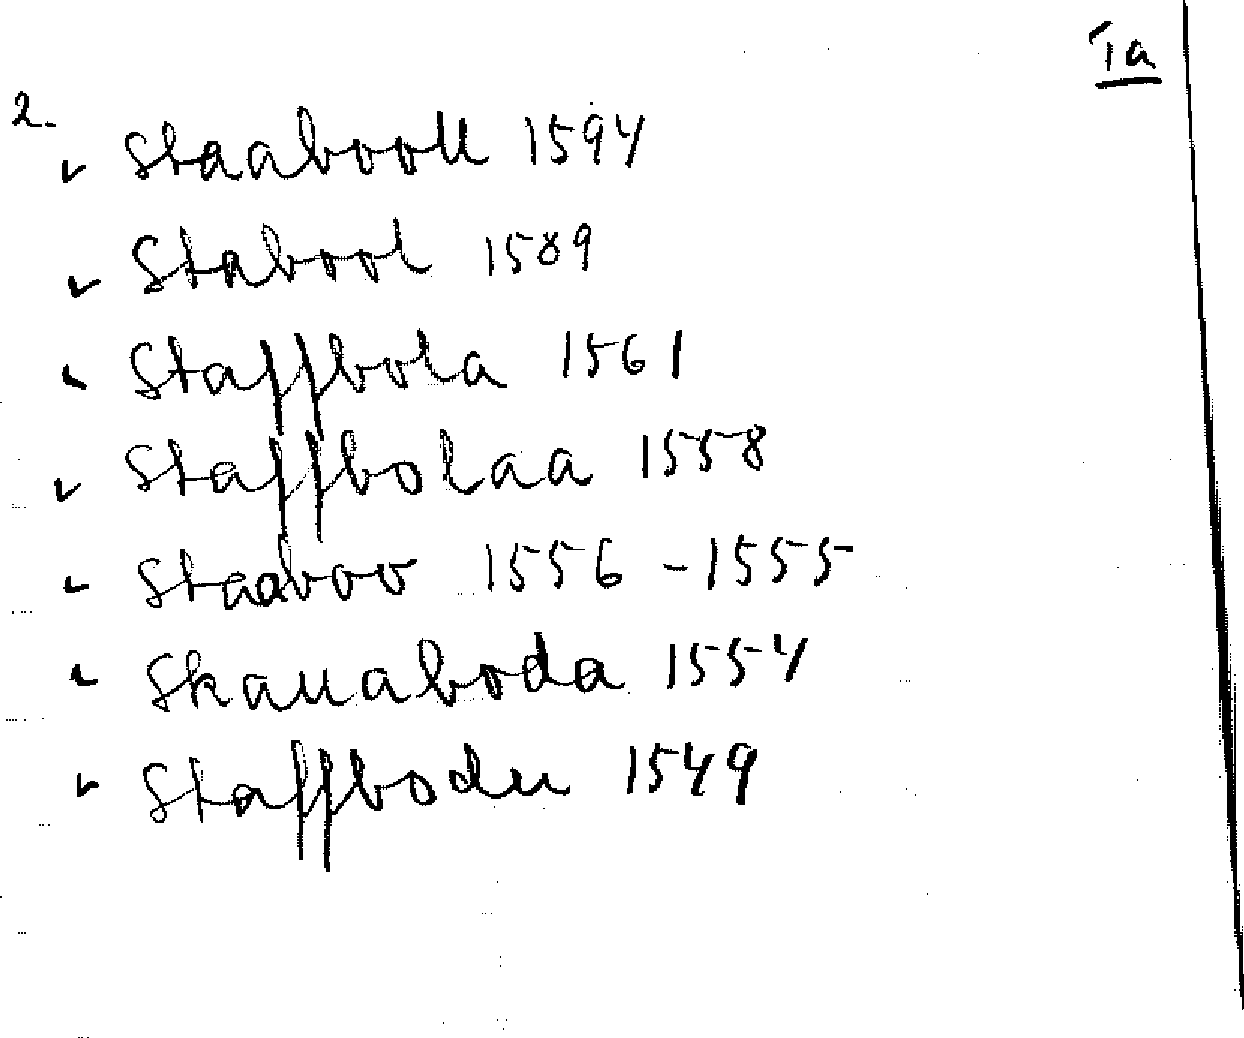 Ia
2.
Staabooll 1594
Stabool 1589
Staffbola 1561
Staffbolaa 1558
Staaboo 1556 - 1555
Skauaboda 1554
Staffboden 1549